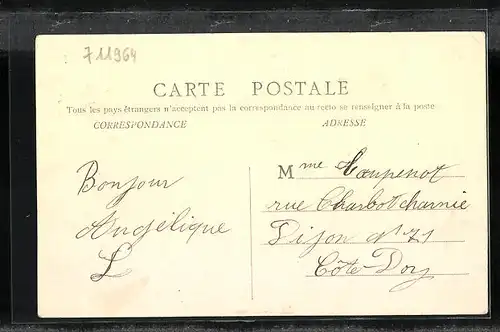 711964
CARTE POSTALE
Tous les pays étrangers n'acceptent pas la correspondance au recto se renseigner à la poste
CORRESPONDANCE
ADRESSE
Bonjour
Angélique
L
Mme Coupenot
rue Chabot charnie
Dijon N° 71
Côte-Dor